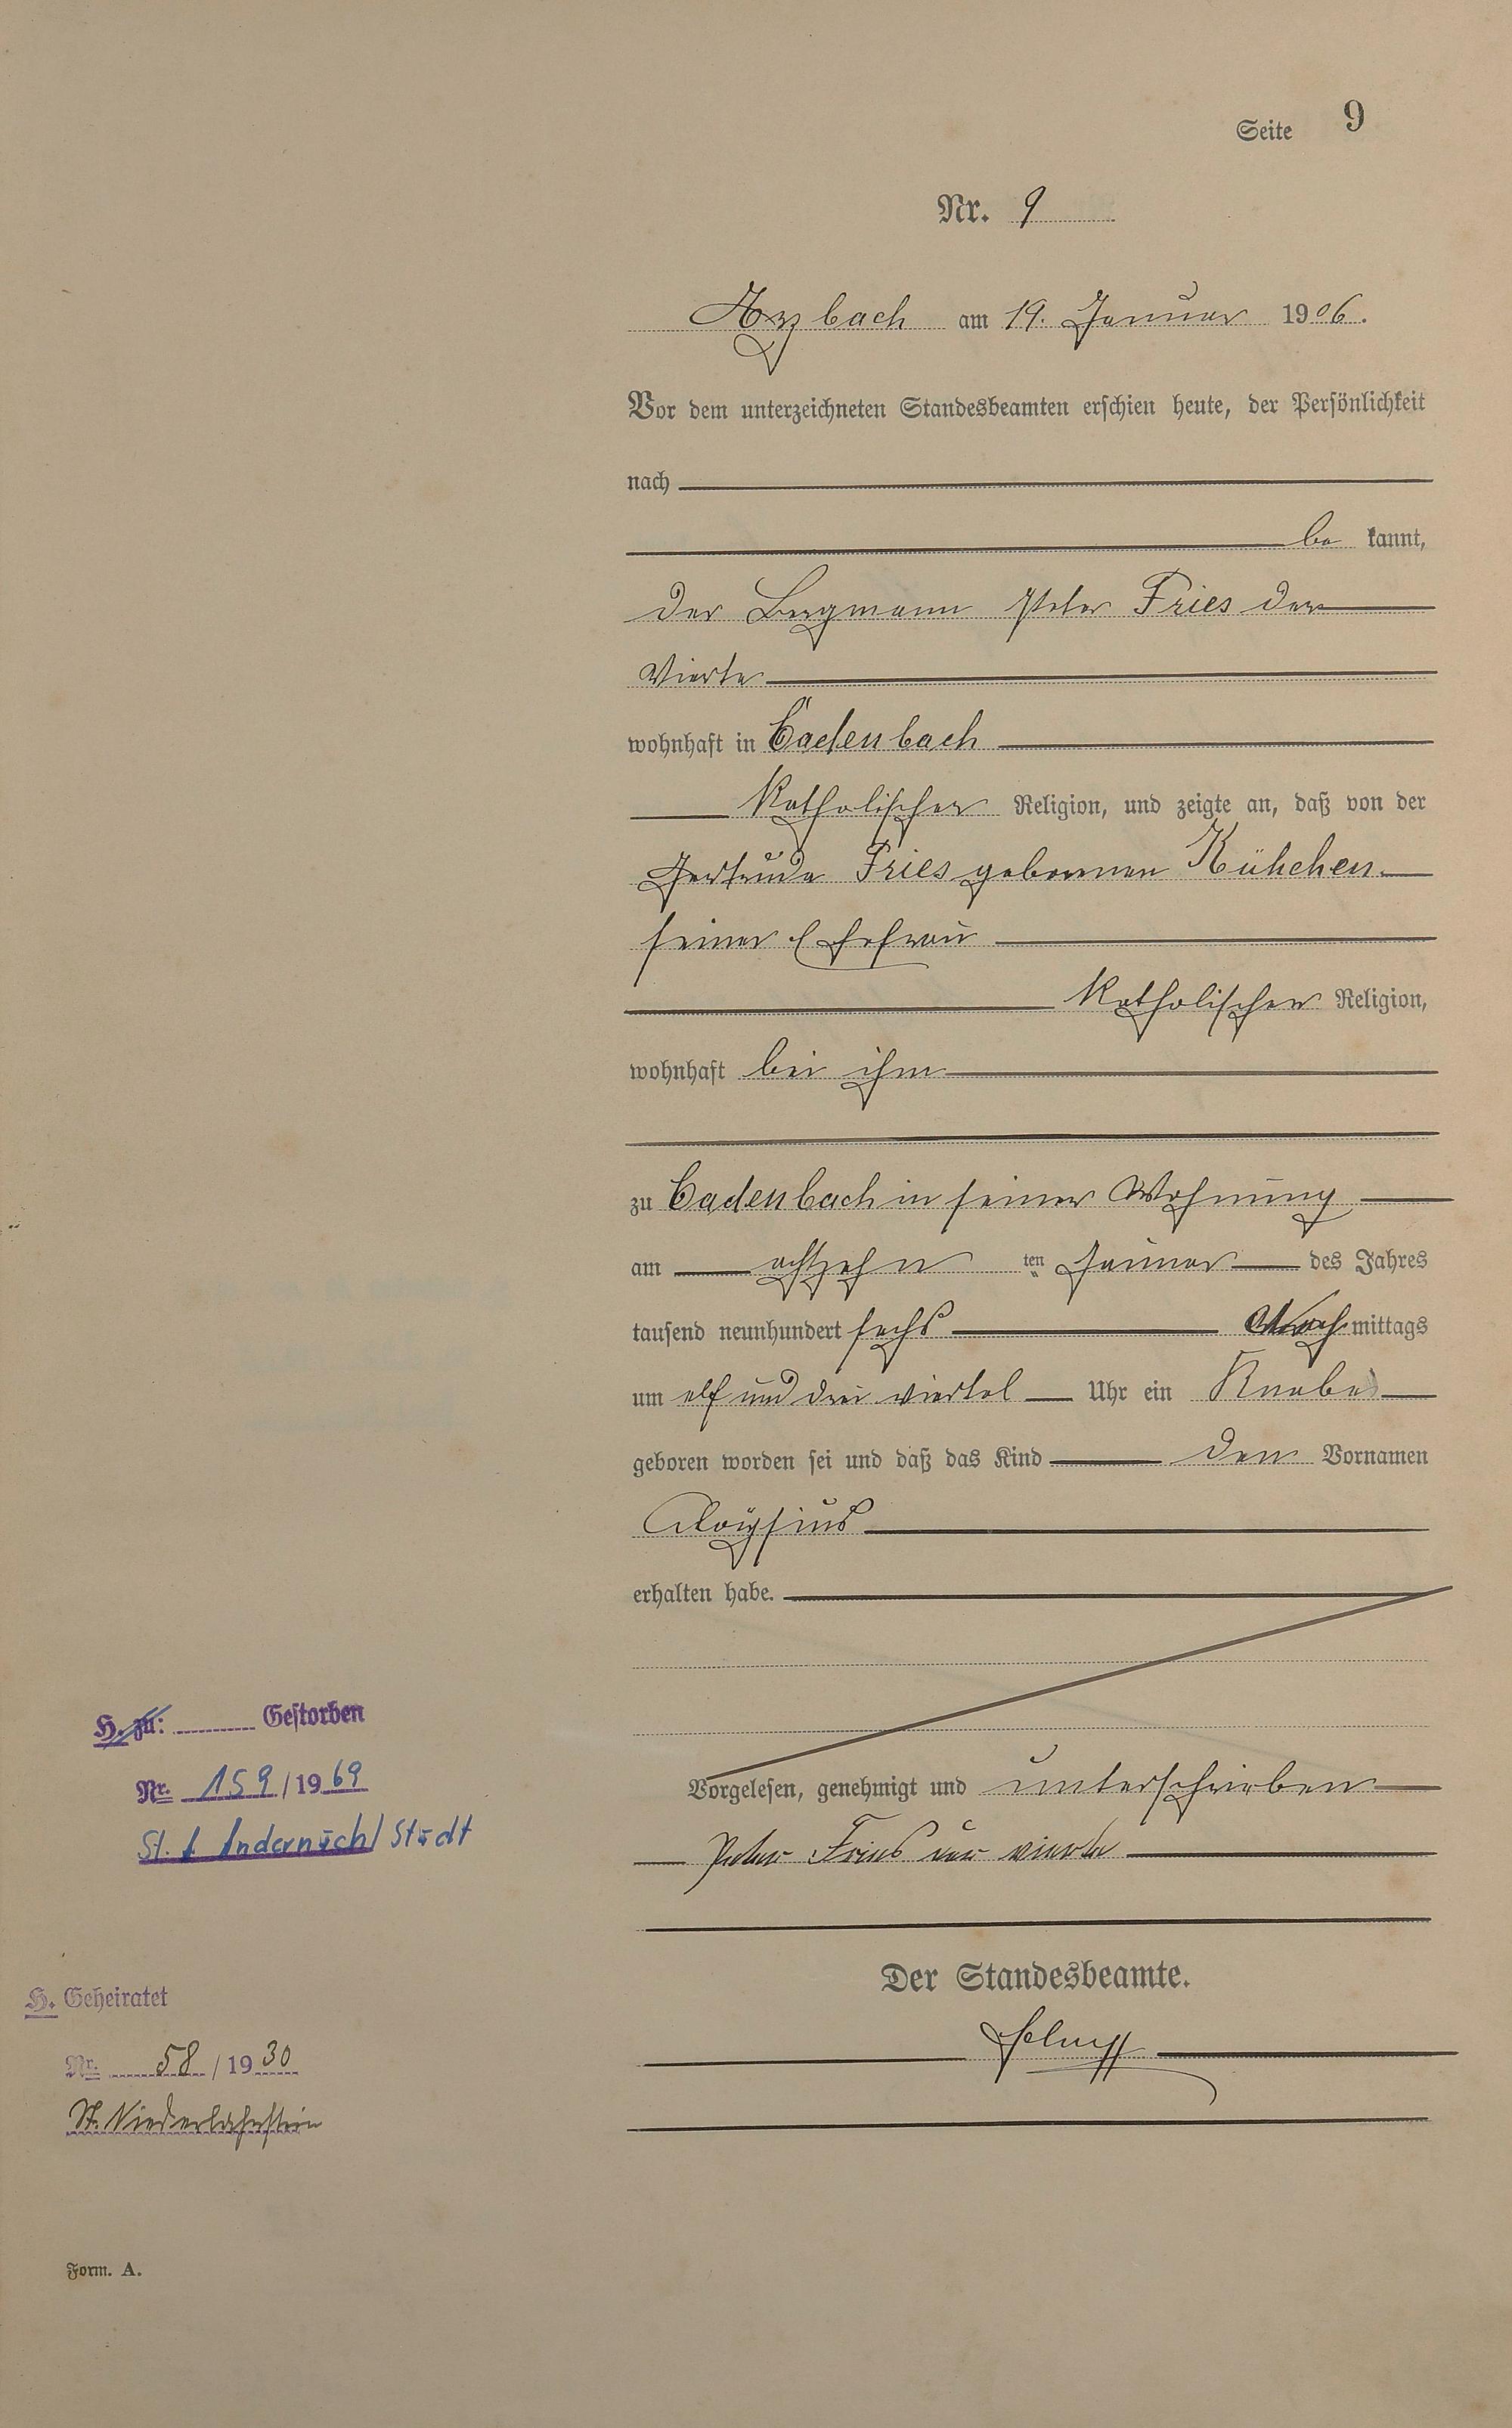 Seite 9
Nr. 9
Arzbach am 19. Januar 1906.
Vor dem unterzeichneten Standesbeamten erschien heute, der Persönlichkeit
nach
be kannt,
der Bergmann Peter Fries der
Vierte
wohnhaft in Cadenbach
Katholischer Religion, und zeigte an, daß von der
Gertrude Fries geborenen Kühchen
seiner Ehefrau
Katholischer Religion,
wohnhaft bei ihm
zu Cadenbach in seiner Wohnung
am achtzehn ten Januar des Jahres
tausend neunhundert sechs Nachmittags
um elf und drei viertel Uhr ein Knabe
geboren worden sei und daß das Kind den Vornamen
Aloÿsius
erhalten habe.
H. zu: Gestorben
Nr. 159/1969
St. A Andernach/Stadt
Vorgelesen, genehmigt und unterschrieben
Peter Fries der vierte
Der Standesbeamte.
H. Geheiratet
Nr. 58/1930
St. Niederlahnstein
Form. A.